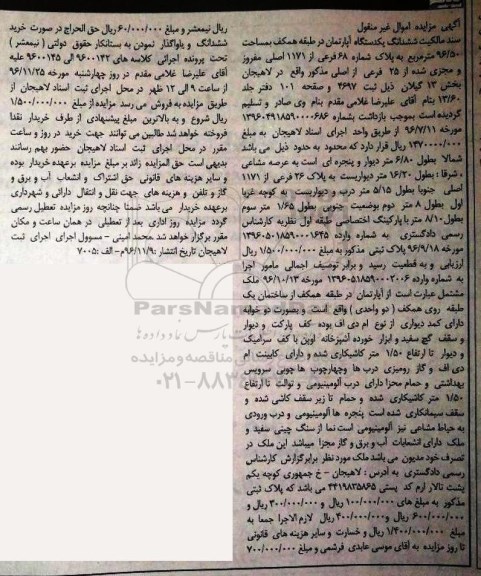 آگهی مزایده اموال غیر منقول
سند مالکیت ششدانگ یکدستگاه آپارتمان در طبقه همکف بمساحت
۹۶/۵۰ مترمربع به پلاک شماره ۶۸ فرعی از ۱۱۷۱ اصلی مفروز
و مجزی شده از ۲۵ فرعی از اصلی مذکور واقع در لاهیجان
بخش ۱۳ گیلان ذیل ثبت ۴۶۹۷ و صفحه ۱۰۱ دفتر جلد
۱۳/۶۰ بنام آقای علیرضا غلامی مقدم بنام وی صادر و تسلیم
گردیده است بموجب بازداشت بشماره ۱۳۹۶۰۴۹۱۸۵۹۰۰۰۶۸۶
مورخه ۹۶/۷/۱۱ از طریق واحد اجرای اسناد لاهیجان به مبلغ
۱۴۷۰۰۰۰/۰۰۰ ریال قرار دارد که محدود به حدود ذیل می باشد
شمالا بطول ۶/۸۰ متر دیوار و پنجره ای است به عرصه مشاعی
، شرقا : بطول ۱۶/۲۰ متر دیواریست به پلاک ۲۶ فرعی از ۱۱۷۱
اصلی جنوبا بطول ۵/۱۵ متر درب و دیواریست به کوچه غربا
اول بطول ۸ متر دوم بوضعیت جنوبی بطول ۱/۶۵ متر سوم
بطول ۸/۱۰ متر با پارکینگ اختصاصی طبقه اول نظریه کارشناس
رسمی دادگستری به شماره وارده ۱۳۹۶۰۵۰۱۸۵۹۰۰۰۱۶۴۵
مورخه ۹۶/۹/۱۸ پلاک ثبتی مذکور به مبلغ ۱/۵۰۰/۰۰۰/۰۰۰ ریال
ارزیابی و به قطعیت رسید و برابر توصیف اجمالی مامور اجرا
به شماره وارده ۱۳۹۶۰۵۱۸۵۹۰۰۰۲۰۰۶ مورخه ۹۶/۱۰/۱۳ ملک
مشتمل عبارت است از آپارتمان در طبقه همکف از ساختمان یک
طبقه روی همکف ( دو واحدی ) واقع است و بصورت دو خوابه
دارای کمد دیواری از نوع ام دی اف بوده کف پارکت و دیوار
و سقف گچ سفید و ابزار خورده آشپزخانه اوپن با کف سرامیک
و دیوار تا ارتفاع ۱/۵۰ متر کاشیکاری شده و دارای کابینت ام
دی اف و گاز رومیزی درب ها وچهارچوب ها چوبی سرویس
بهداشتی و حمام مجزا دارای درب آلومینیومی و توالت تا ارتفاع
۱/۵۰ متر کاشیکاری شده و حمام تا زیر سقف کاشی شده و
سقف سیمانکاری شده است پنجره ها آلومینیومی و درب ورودی
به حیاط مشاعی نیز آلومینیومی است نما از سنگ چینی سفید و
ملک دارای انشعابات آب و برق و گاز مجزا میباشد این ملک در
تصرف خود مدیون می باشد ملک مورد نظر برابر گزارش کارشناس
رسمی دادگستری به آدرس : لاهیجان – خ جمهوری کوچه یکم
پشت تالار ارم کد پستی ۴۴۱۹۸۳۵۸۶۵ می باشد که پلاک ثبتی
مذکور به مبلغ های ۱۰۰/۰۰۰/۰۰۰ ریال و ۳۰۰/۰۰۰/۰۰۰ ریال و
۶۰۰/۰۰۰/۰۰۰ ریال و۴۰۰/۰۰۰/۰۰۰ ریال لازم الاجرا جمعا به
مبلغ ۱/۴۰۰/۰۰۰/۰۰۰ ریال و خسارت و سایر هزینه های قانونی
تا روز مزایده به آقای موسی عابدی فرشمی و مبلغ ۷۰۰/۰۰۰
ریال نیمعشر و مبلغ ۶۰/۰۰۰/۰۰۰ ریال حق الحراج در صورت خرید
ششدانگ و یاواگذار نمودن به بستانکار حقوق دولتی ( نیمعشر )
تحت پرونده اجرائی کلاسه های ۹۶۰۰۱۴۲ الی ۹۶۰۰۱۴۵ علیه
آقای علیرضا غلامی مقدم در روز چهارشنبه مورخه ۹۶/۱۱/۲۵
از ساعت ۹ الی ۱۲ ظهر در محل اجرای ثبت اسناد لاهیجان از
طریق مزایده به فروش می رسد مزایده از مبلغ ۱/۵۰۰/۰۰۰/۰۰۰
ریال شروع و به بالاترین مبلغ پیشنهادی از طرف خریدار نقدا
فروخته خواهد شد طالبین می توانند جهت خرید در روز و ساعت
مقرر در محل اجرای ثبت اسناد لاهیجان حضور بهم رسانند
بدیهی است حق المزایده زائد بر مبلغ مزایده برعهده خریدار بوده
و سایر هزینه های قانونی حق اشتراک و انشعاب آب و برق و
گاز و تلفن و هزینه های جهت نقل و انتقال دارائی و شهرداری
برعهده خریدار می باشد ضمنا چنانچه روز مزایده تعطیل رسمی
گردد مزایده روز اداری بعد از تعطیلی در همان ساعت و مکان
مقرر برگزار خواهد شد .محمد امینی – مسوول اجرای اجرای ثبت
لاهیجان تاریخ انتشار :۹۶/۱۱/۹م– الف :۷۰۰۵
ParsNamadData
۰۲۱-۸۸۳